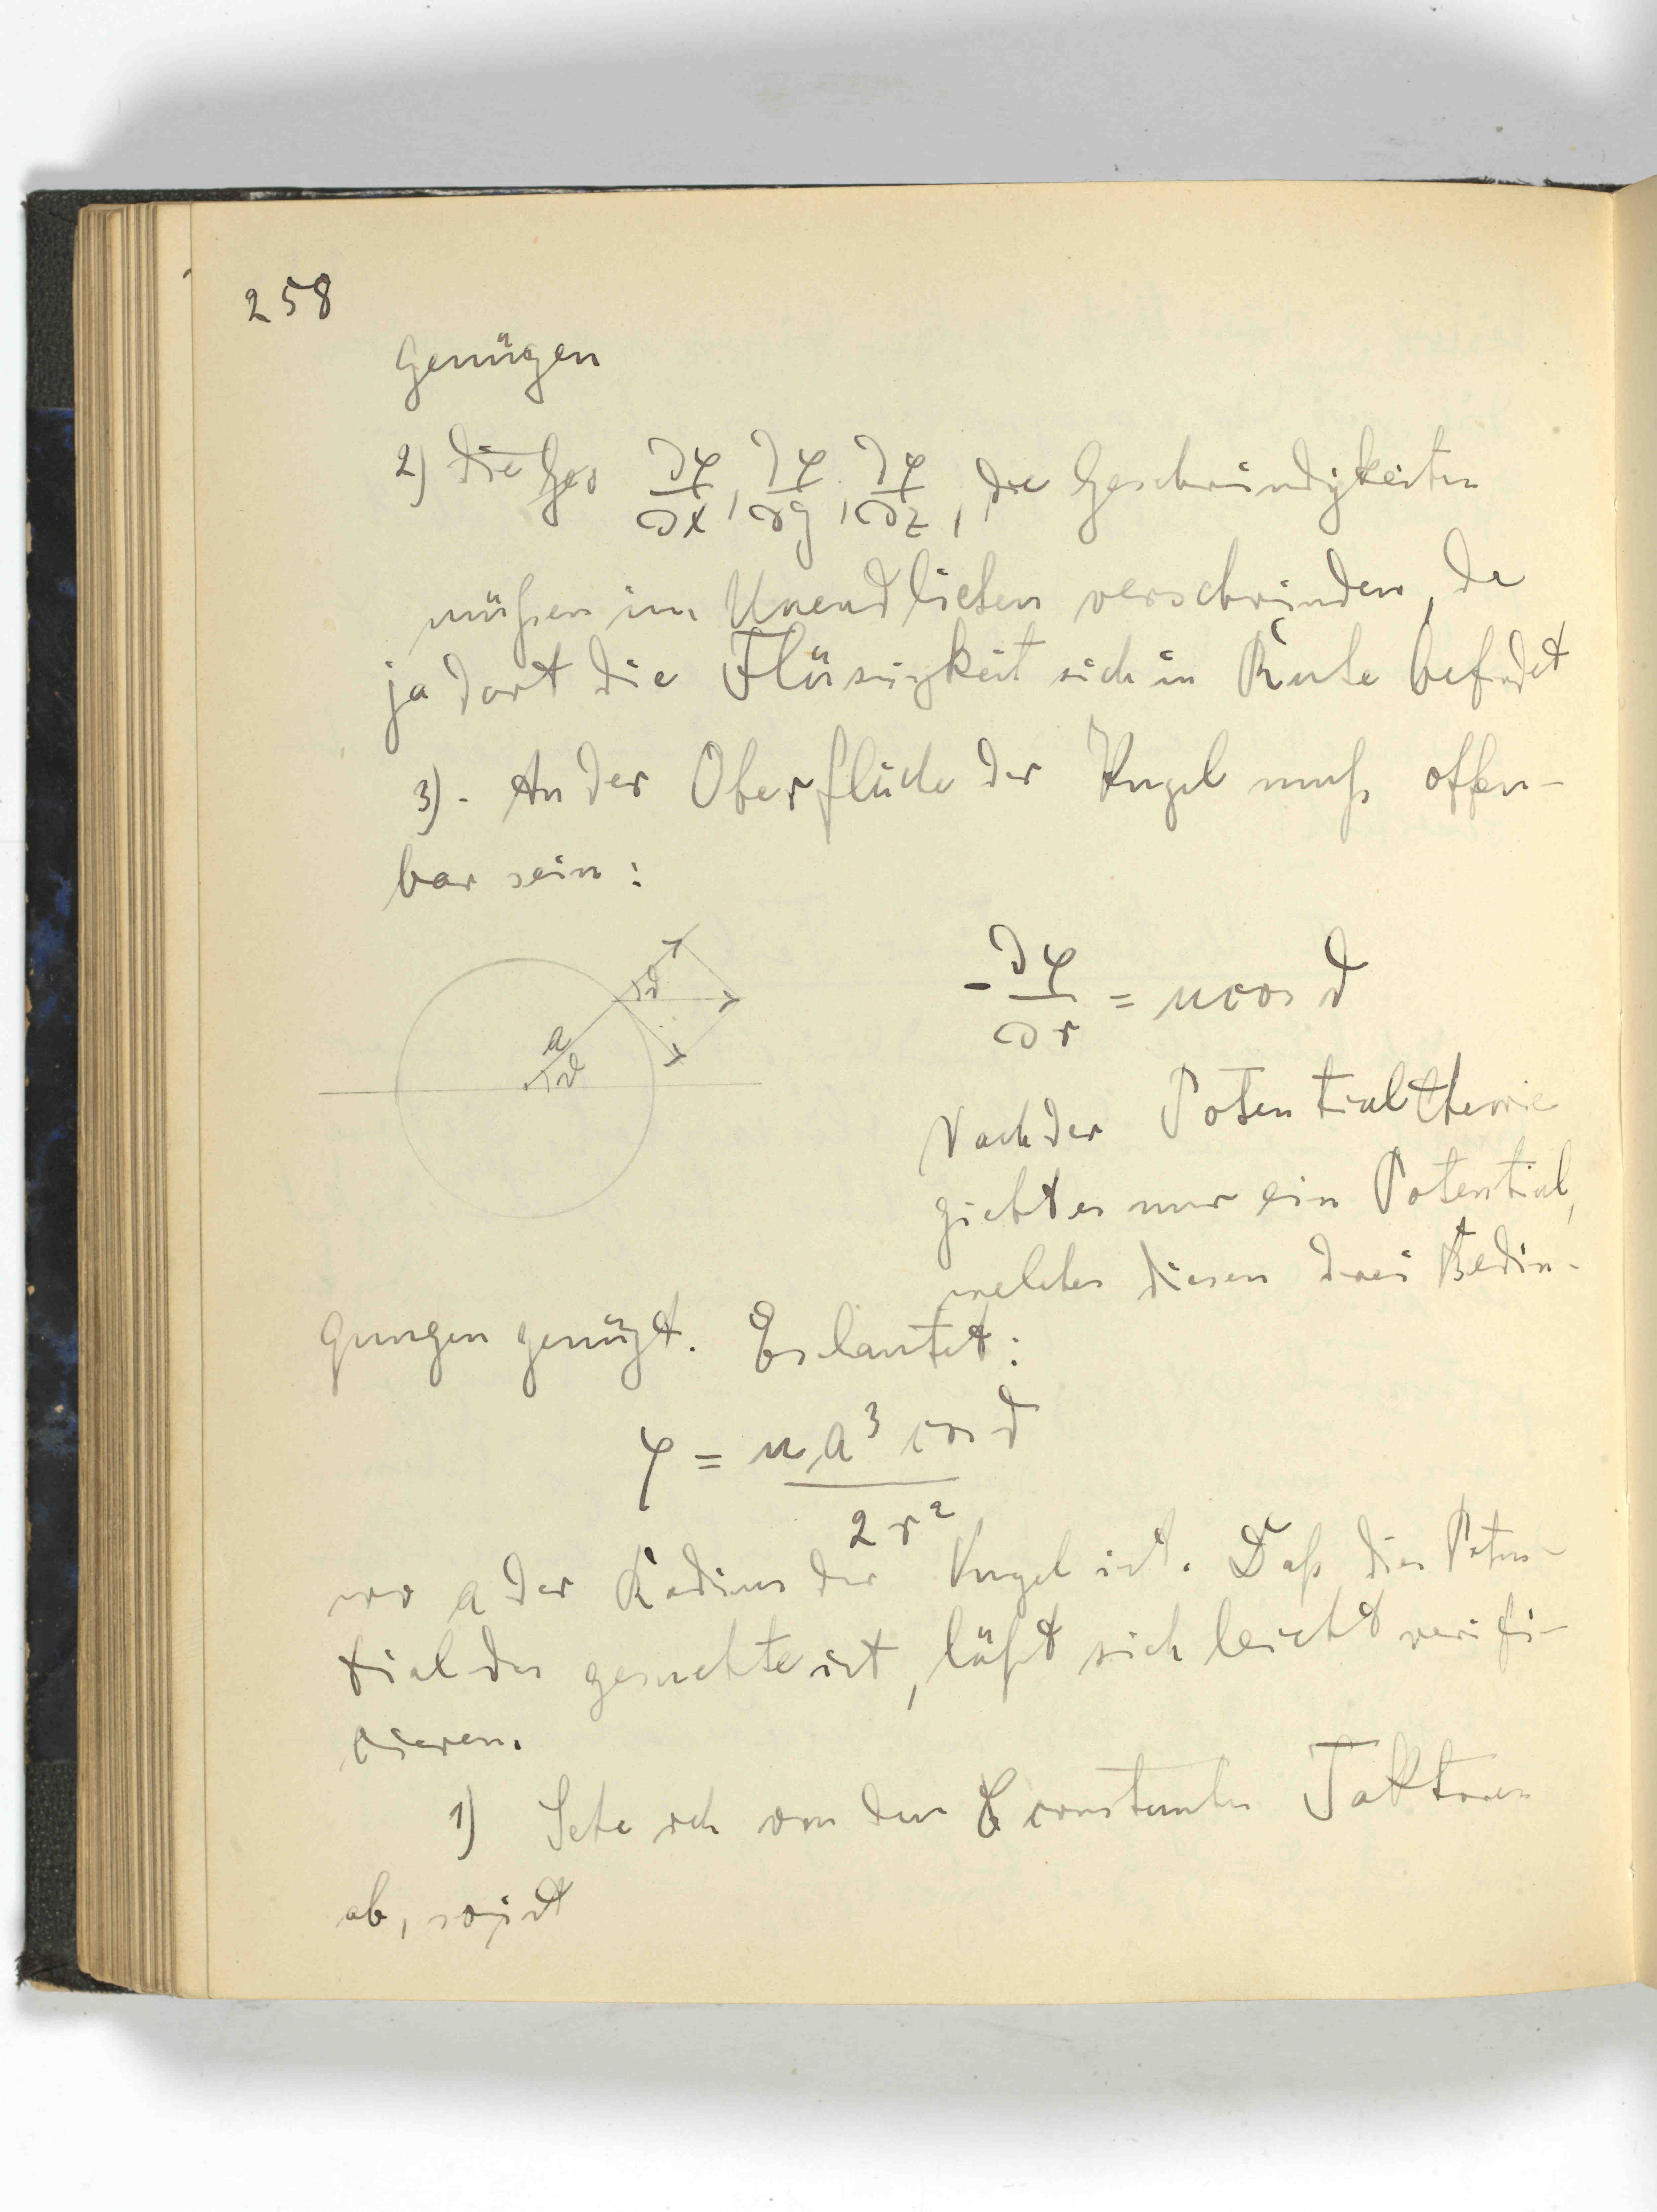 258
Genügen
2) die Ges ∂φ/∂x, ∂φ/∂y, ∂φ/∂z, die Geschwindigkeiten
müßen im Unendlichen verschwinden, da
ja dort die Flüssigkeit sich in Ruhe befindet
3). An der Oberfläche der Kugel muß offen-
bar sein:
a
ϑ
ϑ
-∂φ/∂r = u cos ϑ
Nach der Potentialtheorie
giebt es nur ein Potential,
welches diesen drei Bedin-
gungen genügt. Es lautet:
φ = u a³ cos ϑ / 2 r²
wo a der Radius der Kugel ist. Daß dies Poten-
tial das gesuchte ist, läßt sich leicht verifi-
cieren.
1) Sehe ich von den constanten Faktoren
ab, so ist